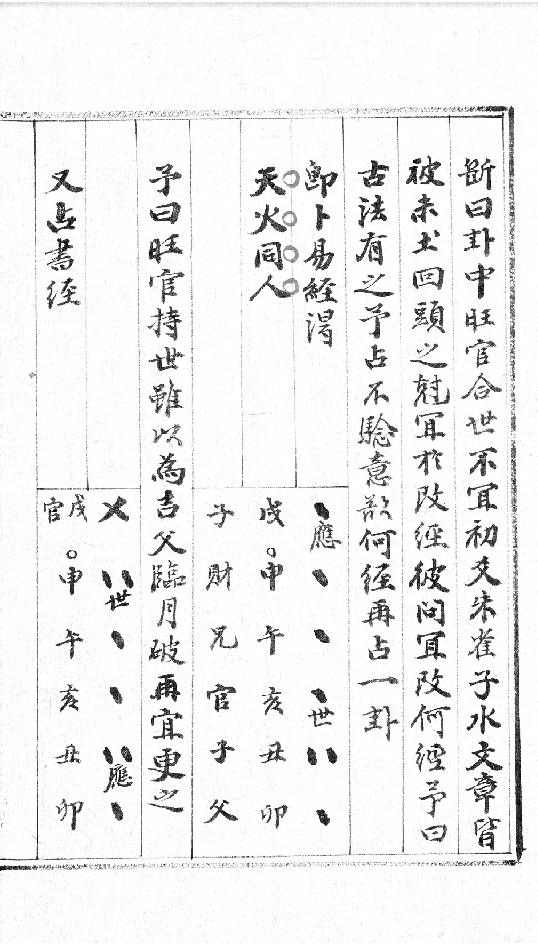 斷曰卦中旺官合世不冝初爻朱雀子水文章皆
被未土回頭之尅冝於改經彼问冝改何經予曰
古法有之予占不驗意㱃何經再占一卦
即卜易經得
應 世
天火同人
戌申午亥丑卯
子財兄官子父
予曰旺官持世雖以為吉父臨月破再宜更之
世 應
又占書經
戌申午亥丑卯
官